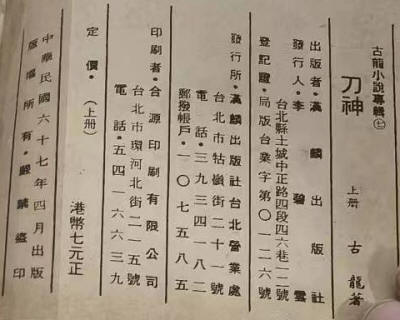 古龍小說專輯(七)
刀神 上册 古龍著
出版者・漢麟出版社
發行人・李碧雲
台北縣土城中正路四段四六巷一二號
登記證・局版台業字第〇一二六號
發行所・漢麟出版社台北營業處
台北市牯嶺街二十一號
電話・三九三四一八二
郵撥帳戶・一〇七五八五
印刷者・合源印刷有限公司
台北市環河北街二一五號
電話・五四一六六三九
定價・(上册) 港幣七元正
中華民國六十七年四月出版
版權所有・嚴禁盜印